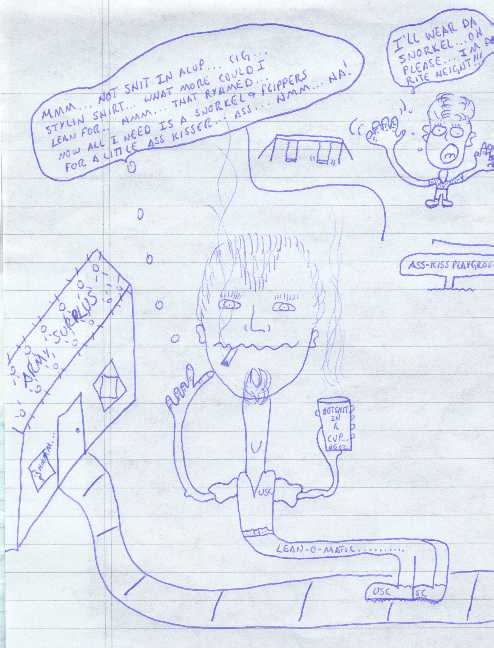 MMM... NOT SNIT IN A CUP... CIG...
STYLIN SHIRT... WHAT MORE COULD I
LEAN FOR.. HMM... THAT RYAMED...
NOW ALL I NEED IS A SNORKEL & FLIPPERS
FOR A LITTLE ASS KISSER... ASS... HMM... HA!
I'LL WEAR DA
SNORKEL...OH
PLEASE... I'M DA
RITE HEIGHT!!!
ASS-KISS PLAYGROU
ARMY SURPLUS
HOT SNIT
IN
A
CUP...
USC
LEAN-O-MATIC..........
USC
SC